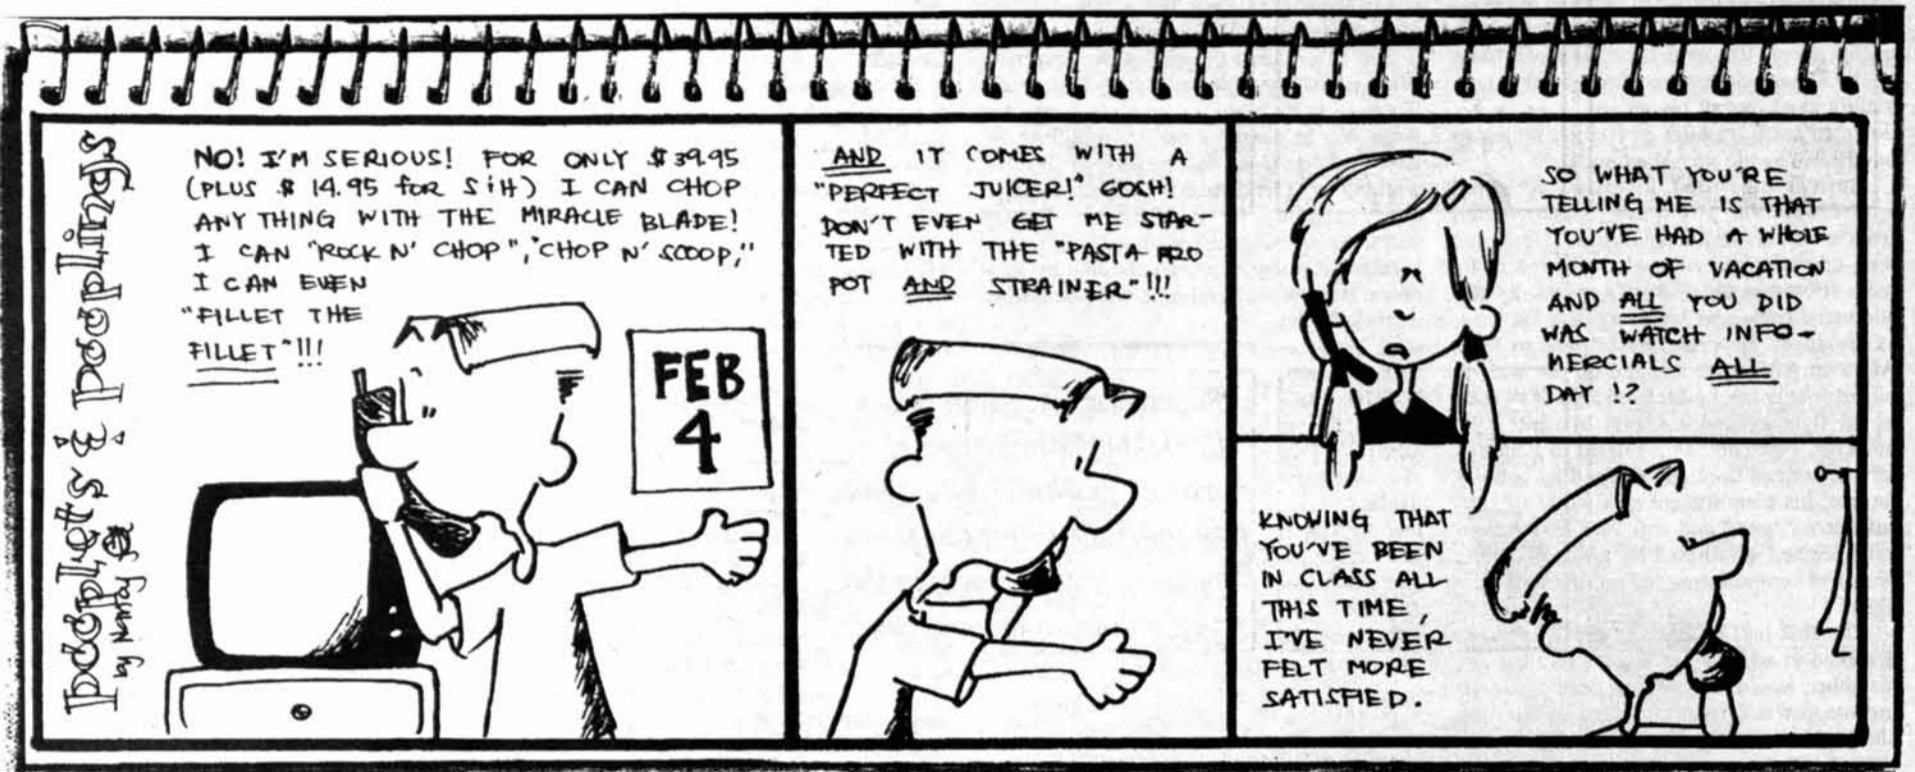 peeplets & peeplings
by Nancy
NO! I'M SERIOUS! FOR ONLY $39.95
(PLUS $14.95 for S&H) I CAN CHOP
ANY THING WITH THE MIRACLE BLADE!
I CAN "ROCK N' CHOP", "CHOP N' SCOOP,"
I CAN EVEN
"FILLET THE
FILLET"!!!
FEB
4
AND IT COMES WITH A
"PERFECT JUICER!" GOSH!
DON'T EVEN GET ME STAR-
TED WITH THE "PASTA PRO
POT AND STRAINER"!!!
SO WHAT YOU'RE
TELLING ME IS THAT
YOU'VE HAD A WHOLE
MONTH OF VACATION
AND ALL YOU DID
WAS WATCH INFO-
MERCIALS ALL
DAY !?
KNOWING THAT
YOU'VE BEEN
IN CLASS ALL
THIS TIME,
I'VE NEVER
FELT MORE
SATISFIED.